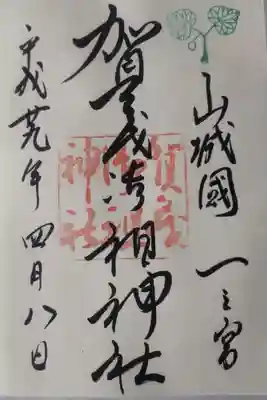 山城國 一之宮
加茂御祖神社
平成廿九年 四月八日
賀茂御祖神社